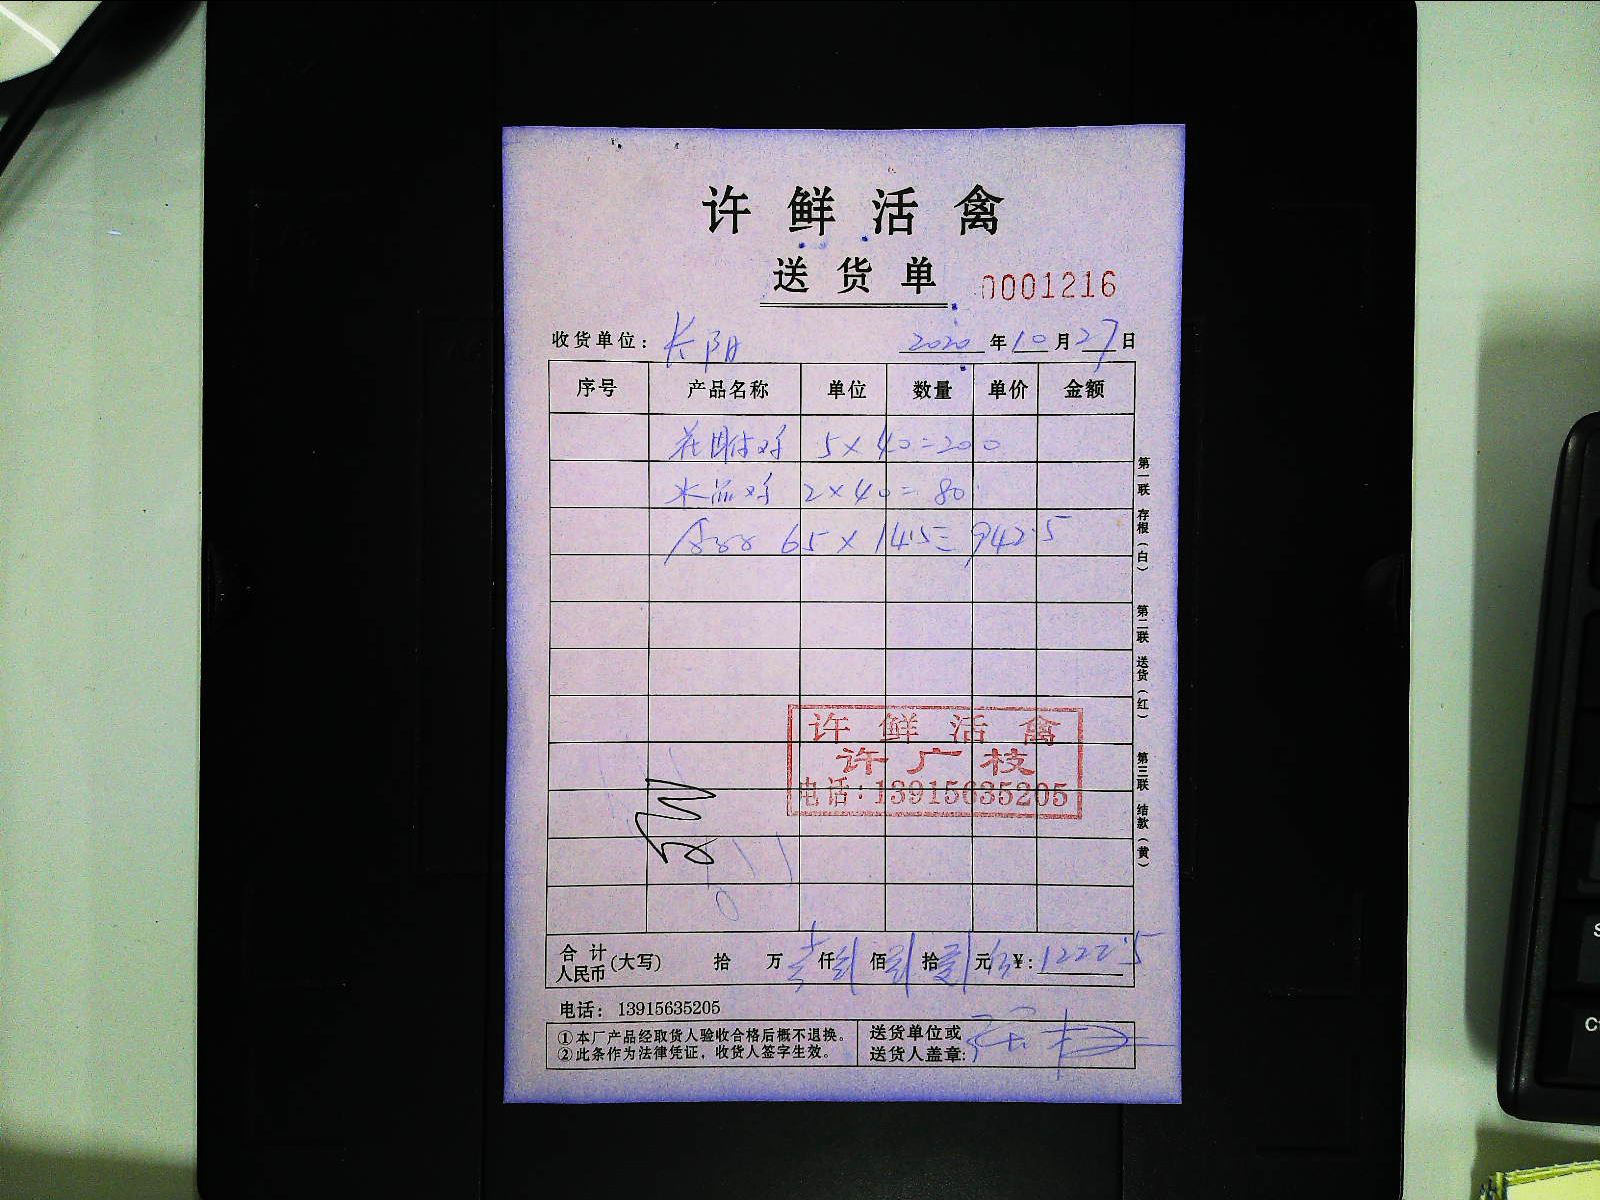 许鲜活禽
送货单 0001216
收货单位: 长阳 2020年10月27日
序号 产品名称 单位 数量 单价 金额
鸡 5×40=200
水品鸡 2×40=80
65×14.5=942.5
许鲜活禽
许广枝
电话:13915635205
合计人民币(大写) 拾 万 仟 佰 拾 元 ¥:1222.5
电话: 13915635205
①本厂产品经取货人验收合格后概不退换。
②此条作为法律凭证,收货人签字生效。
送货单位或
送货人盖章:
第一联 存根(白) 第二联 送货(红) 第三联 结款(黄)
S